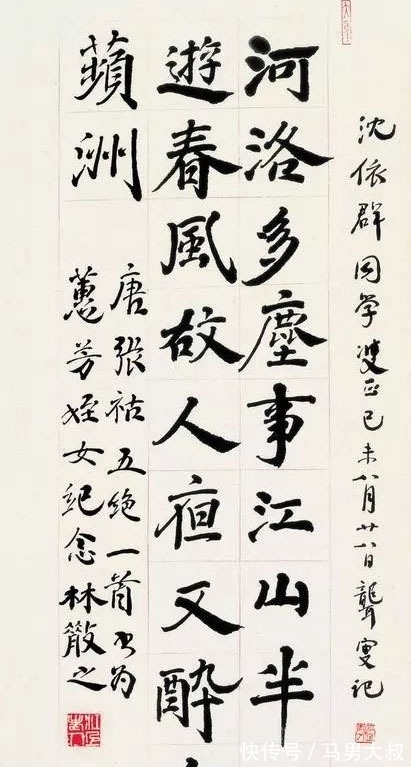 沈依群同学正己未八月廿八日聾叟记
河洛多塵事江山半
遊春風故人夜又醉
蘋洲
唐張祜五绝一首书为
蕙芳姪女纪念林散之
快传号 / 马男大叔